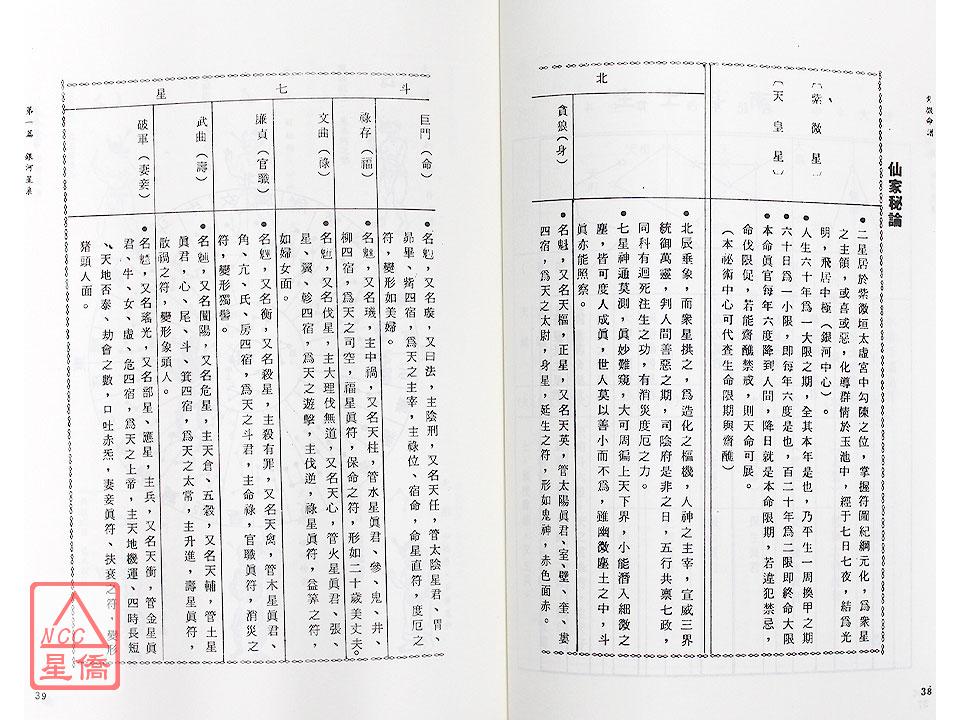 紫微命譜
仙家秘論
〔紫微星〕
〔天皇星〕
●二星居於紫微垣太虛宮中勾陳之位，掌握符圖紀綱元化，爲衆星
之主領，或喜或惡，化導群情於玉池中，經于七日七夜，結爲光
明，飛居中極（銀河中心）。
●人生六十年爲一大限之期，全其本年是也，乃平生一周換甲之期
六十日爲一小限，卽每年六度是也，百二十年爲二限卽終命大限
●本命眞官每年六度降到人間，降日就是本命限期，若違犯禁忌，
命伐限促，若能齋醮禁戒，則天命可展。
（本祕術中心可代查生命限期與齋醮）
北
北辰垂象，而衆星拱之，爲造化之樞機，人神之主宰，宣威三界
統御萬靈，判人間善惡之期，司陰府是非之日，五行共稟七政，
同科有迴死注生之功，有消災度厄之力。
●七星神通莫測，眞妙難窺，大可周徧上天下界，小能潛入細微之
塵，皆可度人成眞，世人莫以善小而不爲，雖幽微塵土之中，斗
眞亦能照察。
貪狼（身）
●名魁，又名天樞，正星，又名天英，管太陽眞君、室、壁、奎、婁
四宿，爲天之太尉，身星，延生之符，形如鬼神，赤色面赤。
38
斗七星
巨門（命）
●名 ，又名璇，又曰法，主陰刑，又名天任，管太陰星君、胃、
昴畢、觜四宿，爲天之主宰，主祿位、宿命，命星直符，度厄之
符，變形如美婦。
祿存（福）
●名 ，又名璣，主中禍，又名天柱，管水星眞君、參、鬼、井、
柳四宿，爲天之司空，福星眞符，保命之符，形如二十歲美丈夫。
文曲（祿）
●名 ，又名伐星，主大理伐無道，又名天心，管火星眞君、張、
星、翼、軫四宿，爲天之遊擊，主伐逆，祿星眞符，益筭之符，
如婦女面。
廉貞（官職）
●名 ，又名衡，又名殺星，主殺有罪，又名天禽，管木星眞君、
角、亢、氐、房四宿，爲天之斗君，主命祿，官職眞符，消災之
符，變形獨髻。
武曲（壽）
●名 ，又名闓陽，又名危星，主天倉、五穀，又名天輔，管土星
眞君，心、尾、斗、箕四宿，爲天之太常，主升進，壽星眞符，
散禍之符，變形象頭人。
破軍（妻妾）
●名 ，又名瑤光，又名部星、應星，主兵，又名天衝，管金星眞
君、牛、女、虛、危四宿，爲天之上帝，主天地機運、四時長短
、天地否泰、劫會之數，口吐赤炁，妻妾眞符、扶衰之符，變形
猪頭人面。
第一篇　銀河星系
39
NCC
星僑